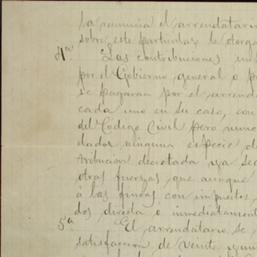 la renuncia el arrendatari
sobre este particular le otorga
4ª. Las contribuciones im
por el Gobierno general o p
se pagaran por el arrenda
cada uno en su caso, con
del Código Civil pero nunc
dador alguna especie d
tribucion decretada ya se
otras fuerzas, que aunque
á las fincas con impuestos,
dos directa o inmediatament
5ª El arrendatario se
satisfaccion de veinte y un